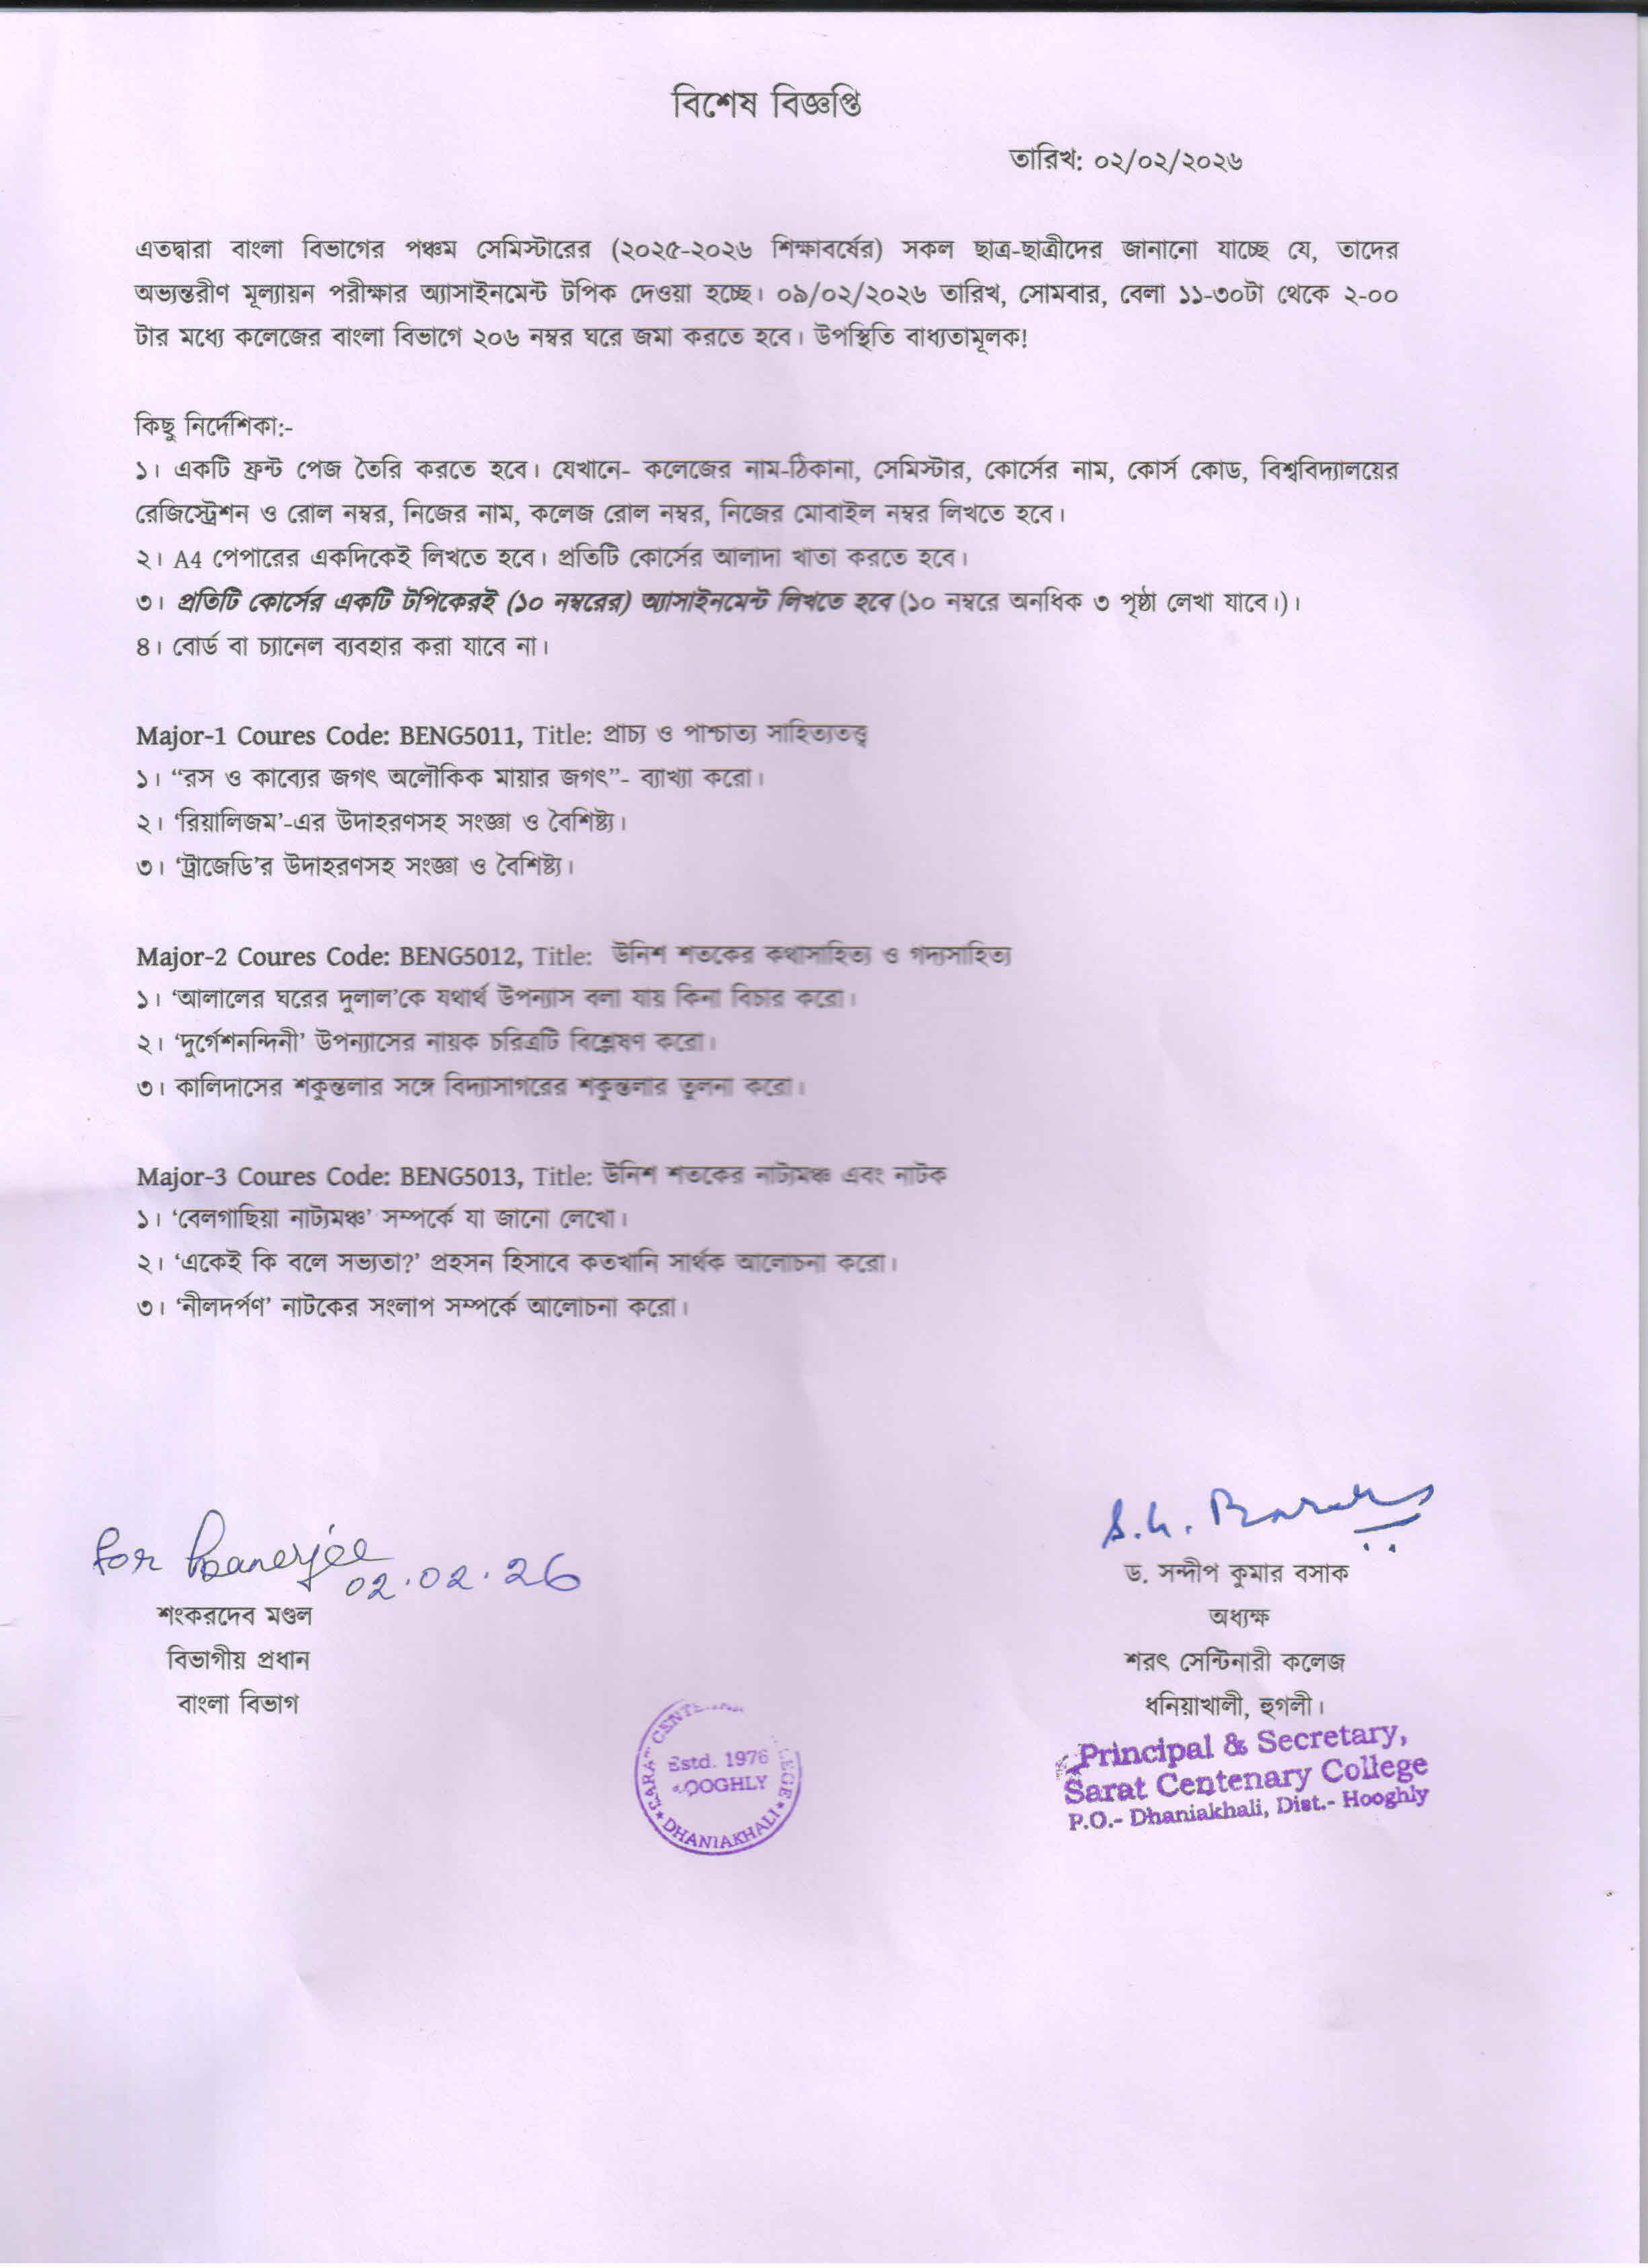 বিশেষ বিজ্ঞপ্তি
তারিখ: ০২/০২/২০২৬
এতদ্বারা বাংলা বিভাগের পঞ্চম সেমিস্টারের (২০২৫-২০২৬ শিক্ষাবর্ষের) সকল ছাত্র-ছাত্রীদের জানানো যাচ্ছে যে, তাদের
অভ্যন্তরীণ মূল্যায়ন পরীক্ষার অ্যাসাইনমেন্ট টপিক দেওয়া হচ্ছে। ০৯/০২/২০২৬ তারিখ, সোমবার, বেলা ১১-৩০টা থেকে ২-০০
টার মধ্যে কলেজের বাংলা বিভাগে ২০৬ নম্বর ঘরে জমা করতে হবে। উপস্থিতি বাধ্যতামূলক!
কিছু নির্দেশিকা:-
১। একটি ফ্রন্ট পেজ তৈরি করতে হবে। যেখানে- কলেজের নাম-ঠিকানা, সেমিস্টার, কোর্সের নাম, কোর্স কোড, বিশ্ববিদ্যালয়ের
রেজিস্ট্রেশন ও রোল নম্বর, নিজের নাম, কলেজ রোল নম্বর, নিজের মোবাইল নম্বর লিখতে হবে।
২। A4 পেপারের একদিকেই লিখতে হবে। প্রতিটি কোর্সের আলাদা খাতা করতে হবে।
৩। প্রতিটি কোর্সের একটি টপিকেরই (১০ নম্বরের) অ্যাসাইনমেন্ট লিখতে হবে (১০ নম্বরে অনধিক ৩ পৃষ্ঠা লেখা যাবে।)।
৪। বোর্ড বা চ্যানেল ব্যবহার করা যাবে না।
Major-1 Coures Code: BENG5011, Title: প্রাচ্য ও পাশ্চাত্য সাহিত্যতত্ত্ব
১। “রস ও কাব্যের জগৎ অলৌকিক মায়ার জগৎ”- ব্যাখ্যা করো।
২। ‘রিয়ালিজম’-এর উদাহরণসহ সংজ্ঞা ও বৈশিষ্ট্য।
৩। ‘ট্রাজেডি’র উদাহরণসহ সংজ্ঞা ও বৈশিষ্ট্য।
Major-2 Coures Code: BENG5012, Title: উনিশ শতকের কথাসাহিত্য ও গদ্যসাহিত্য
১। ‘আলালের ঘরের দুলাল’কে যথার্থ উপন্যাস বলা যায় কিনা বিচার করো।
২। ‘দুর্গেশনন্দিনী’ উপন্যাসের নায়ক চরিত্রটি বিশ্লেষণ করো।
৩। কালিদাসের শকুন্তলার সঙ্গে বিদ্যাসাগরের শকুন্তলার তুলনা করো।
Major-3 Coures Code: BENG5013, Title: উনিশ শতকের নাট্যমঞ্চ এবং নাটক
১। ‘বেলগাছিয়া নাট্যমঞ্চ’ সম্পর্কে যা জানো লেখো।
২। ‘একেই কি বলে সভ্যতা?’ প্রহসন হিসাবে কতখানি সার্থক আলোচনা করো।
৩। ‘নীলদর্পণ’ নাটকের সংলাপ সম্পর্কে আলোচনা করো।
for Banerjee
02.02.26
শংকরদেব মণ্ডল
বিভাগীয় প্রধান
বাংলা বিভাগ
Estd. 1976
DHANIAKHALI
S.K.
ড. সন্দীপ কুমার বসাক
অধ্যক্ষ
শরৎ সেন্টিনারী কলেজ
ধনিয়াখালী, হুগলী।
Principal & Secretary,
Sarat Centenary College
P.O.- Dhaniakhali, Dist.- Hooghly